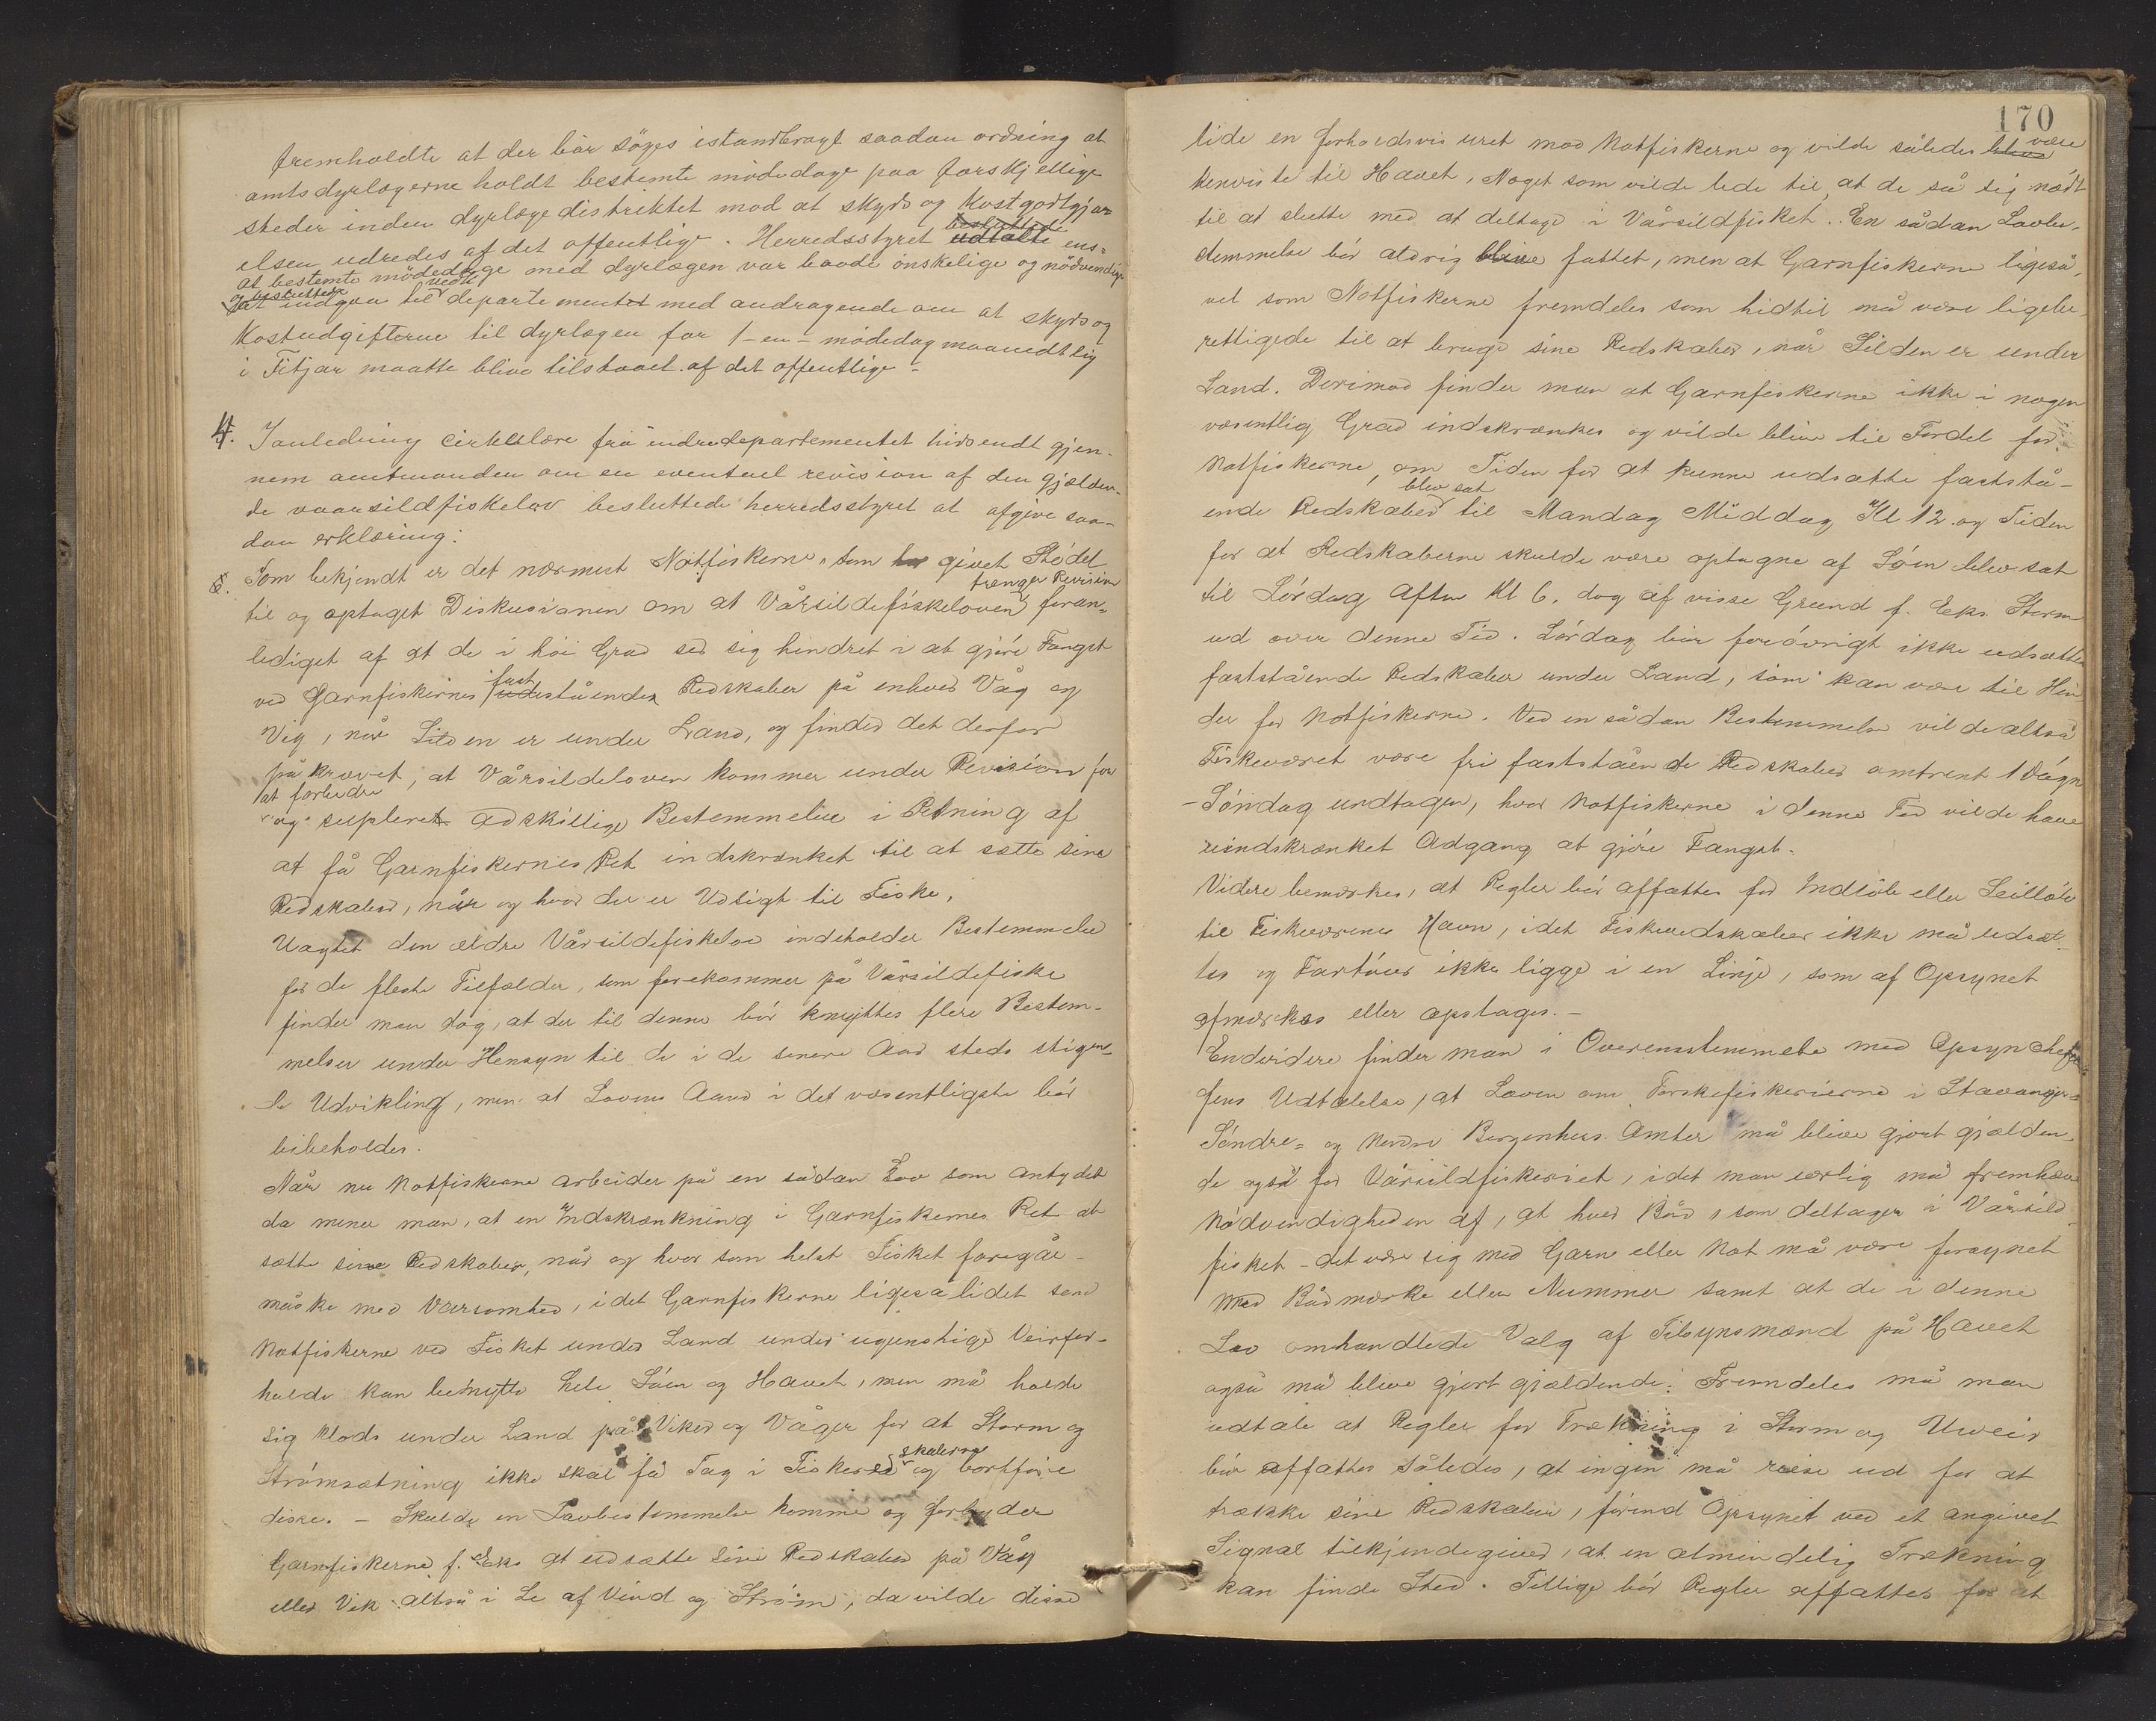 fremholdte at der bör söges istandbragt saadan ordning at
amtsdyrlægerne holdt bestemte mödedage paa forskjellige
steder inden dyrlægedistriktet mod at skyds og kostgodtgjør
elsen udredes af det offentlige. Herredsstyret udtalte besluttede ens=
at bestemte mödedage med dyrlægen var baade önskelige og nödvendige
og besluttede at indgaa til departementet med andragende om at skyds og
Kostudgifterne til dyrlægen for 1 - en - mödedag maanedtlig
i Fitjar maatte blive tilstaaet af det offentlige.
4. I anledning cirkulære frå indredepartementet hidsendt gjen-
nem amtmanden om en eventuel revision af den gjælden-
de vaarsildfiskelov besluttede herredsstyret at afgive saa-
dan erklæring:
Som bekjendt er det nærmest Notfiskerne, som har givet Stödet
til og optaget Diskusionen om at Vårsildefiskeloven trænger Revision foran=
lediget af at de i höi Grad ser sig hindret i at gjöre Fangst
ved Garnfiskernes fast udestående Redskaber på enhver Våg og
Vig, når Silden er under Land, og finder det derfor
påkrævet, at Vårsildeloven kommer under Revision for
at forbedre og supleret adskillige Bestemmelser i Retning af
at få Garnfiskernes Ret indskrænket til at sætte sine
Redskaber, når og hvor der er Udsigt til Fiske.
Uagtet den ældre Vårsildefiskelov indeholder Bestemmelser
for de fleste Tilfælder, som forekommer på Vårsildefiske
finder man dog, at der til denne bör knyttes flere Bestem-
melser under Hensyn til de i de senere Aar steds stigen-
de Udvikling, men at Lovens Aand i det væsentligste bör
bibeholdes.
Når nu Notfiskerne arbeider på en sådan Lov som antydet
da mener man, at en Indskrænkning i Garnfiskernes Ret at
sætte sine Redskaber, når og hvor som helst Fisket foregår -
måske med Varsomhed, idet Garnfiskerne ligesålidet som
Notfiskerne ved Fisket under Land under ugunstige Veirfor-
holde kan benytte hele Söen og Havet, men må holde
sig klods under Land på Viker og Våger for at Storm og
Strömsætning ikke skal få Tag i Fiskeredskaberne og bortföre
disse. - Skulde en Lovbestemmelse komme og forbyder
Garnfiskerne f. Eks at udsætte sine Redskaber på Våg
eller Vik altså i Le af Vind og Ström, da vilde disse
170
lide en forholdsvis uret mod Notfiskerne og vilde således blive være
henviste til Havet, Noget som vilde lede til, at de så sig nödt
til at slutte med at deltage i Vårsildfisket. En sådan Lovbe-
stemmelse bör aldrig blive fattet, men at Garnfiskerne ligeså-
vel som Notfiskerne fremdeles som hidtil må være ligebe-
rettigede til at bruge sine Redskaber, når Silden er under
Land. Derimod finder man at Garnfiskerne ikke i nogen
væsentlig Grad indskrænkes og vilde blive til Fordel for
Notfiskerne, om Tiden for at kunne udsætte faststå-
ende Redskaber blev sat til Mandag Middag Kl 12 og Tiden
for at Redskaberne skulde være optagne af Söen blev sat
til Lördag Aften Kl 6, dog af visse Grund f. Eks. Storm
ud over denne Tid. Lördag bör forövrigt ikke udsættes
faststående Redskaber under Land, som kan være til Hin-
der for Notfiskerne. Ved en sådan Bestemmelse vilde altså
Fiskeværet være fri faststående Redskaber omtrent 1 Dögn
- Söndag undtagen, hvor Notfiskerne i denne Tid vilde have
uindskrænket Adgang at gjöre Fangst.
Videre bemærkes, at Regler bör affattes for Indlöb eller Seillöb
til Fiskeværenes Havn, idet Fiskeredskaber ikke må udsæt-
tes og Fartöier ikke ligge i en Linje, som af Opsynet
afmærkes eller opstages. -
Endvidere finder man i Overensstemmelse med Opsynschef-
fens Udtalelse, at Loven om Torskefiskerierne i Stavanger=
Söndre= og Nordre Bergenhus Amter må blive gjort gjælden-
de også for Vårsildfiskeriet, idet man særlig må fremhæve
Nödvendigheden af, at hver Båd, som deltager i Vårsild-
fisket - det være sig med Garn eller Not må være forsynet
med Bådmærke eller Nummer samt at de i denne
Lov omhandlede Valg af Tilsynsmænd på Havet
også må blive gjort gjældende. Fremdeles må man
udtale at Regler for Trækning i Storm og Uveir
bör affattes således, at ingen må reise ud for at
trække sine Redskaber, förend Opsynet ved et angivet
Signal tilkjendegiver, at en almindelig Trækning
kan finde Sted. Tillige bör Regler affattes for at